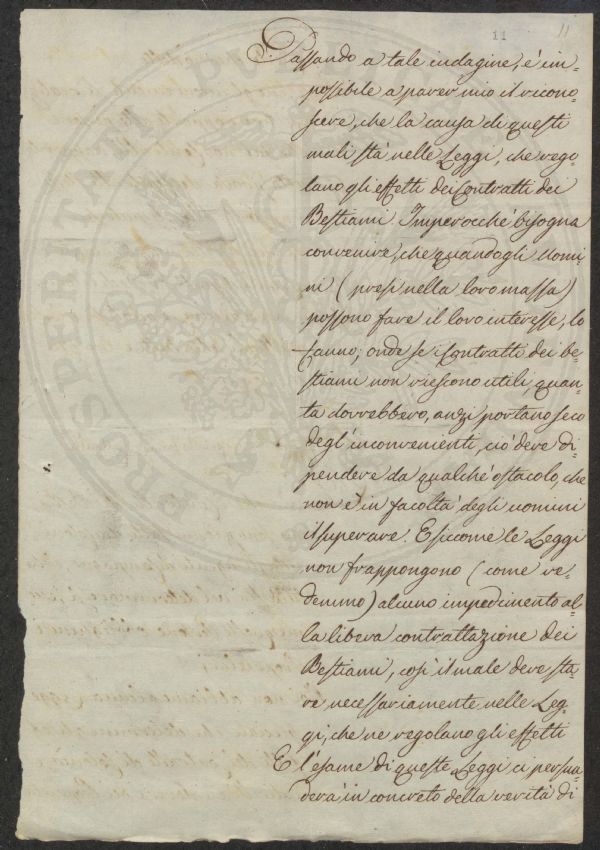 11 11
Passando a tale indagine, è im=
possibile a parer mio il ricono=
scere, che la causa di questi
mali stà nelle Leggi, che rego
lano gli effetti dei Contratti dei
Bestiami. Imperocchè bisogna
convenire, che quando gli uomi
ni (presi nella loro massa)
possono fare il loro interesse, lo
fanno; onde se i Contratti dei be=
stiami non riescono utili, quan=
to dovrebbero, anzi portano seco
degl'inconvenienti, ciò deve di=
pendere da qualche ostacolo, che
non è in facoltà degli uomini
il superare. E siccome le Leggi
non frappongono (come ve=
demmo) alcuno impedimento al=
la libera contrattazione dei
Bestiami, così il male deve sta=
re necessariamente nelle Leg=
gi, che ne regolano gli effetti
E l'esame di queste Leggi ci persua=
derà in concreto della verità di
PROSPERITATI PUBLI